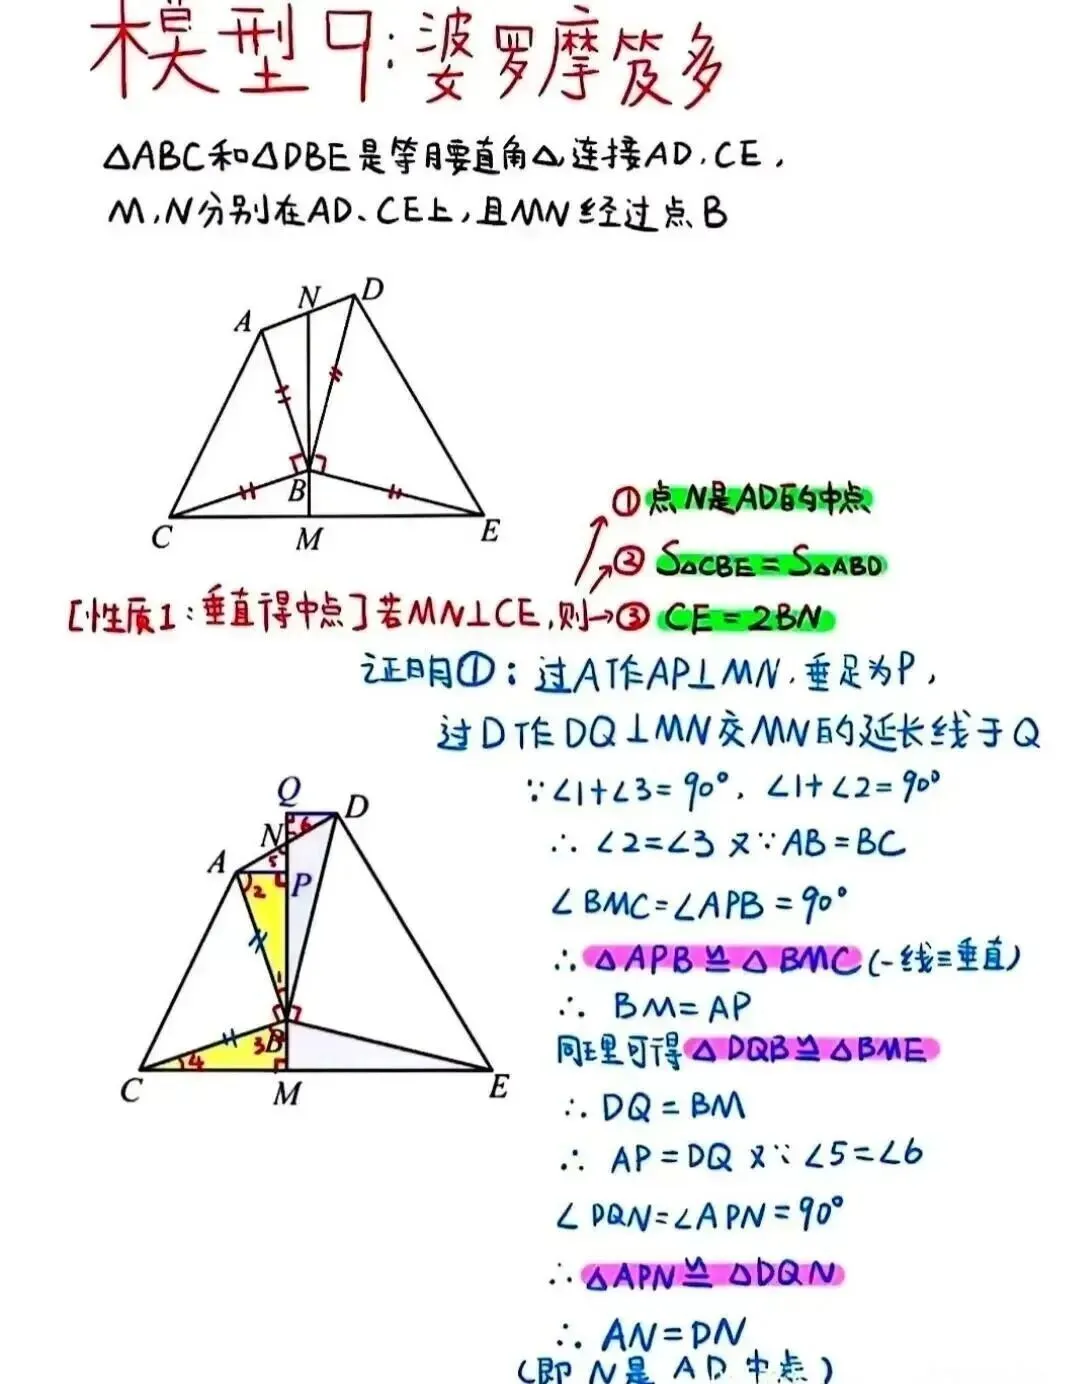 模型9:婆罗摩笈多
△ABC和△DBE是等腰直角△,连接AD、CE,
M,N分别在AD、CE上,且MN经过点B
N
D
A
B
C
M
E
①点N是AD的中点
②S△CBE=S△ABD
[性质1:垂直得中点]若MN⊥CE,则→③CE=2BN
证明①:过A作AP⊥MN,垂足为P,
过D作DQ⊥MN交MN的延长线于Q
Q
D
N
6
A
5
2
P
1
3
B
4
C
M
E
∵∠1+∠3=90°,∠1+∠2=90°
∴∠2=∠3 又∵AB=BC
∠BMC=∠APB=90°
∴△APB≌△BMC(一线三垂直)
∴BM=AP
同理可得△DQB≌△BME
∴DQ=BM
∴AP=DQ 又∵∠5=∠6
∠DQN=∠APN=90°
∴△APN≌△DQN
∴AN=DN
(即N是AD中点)